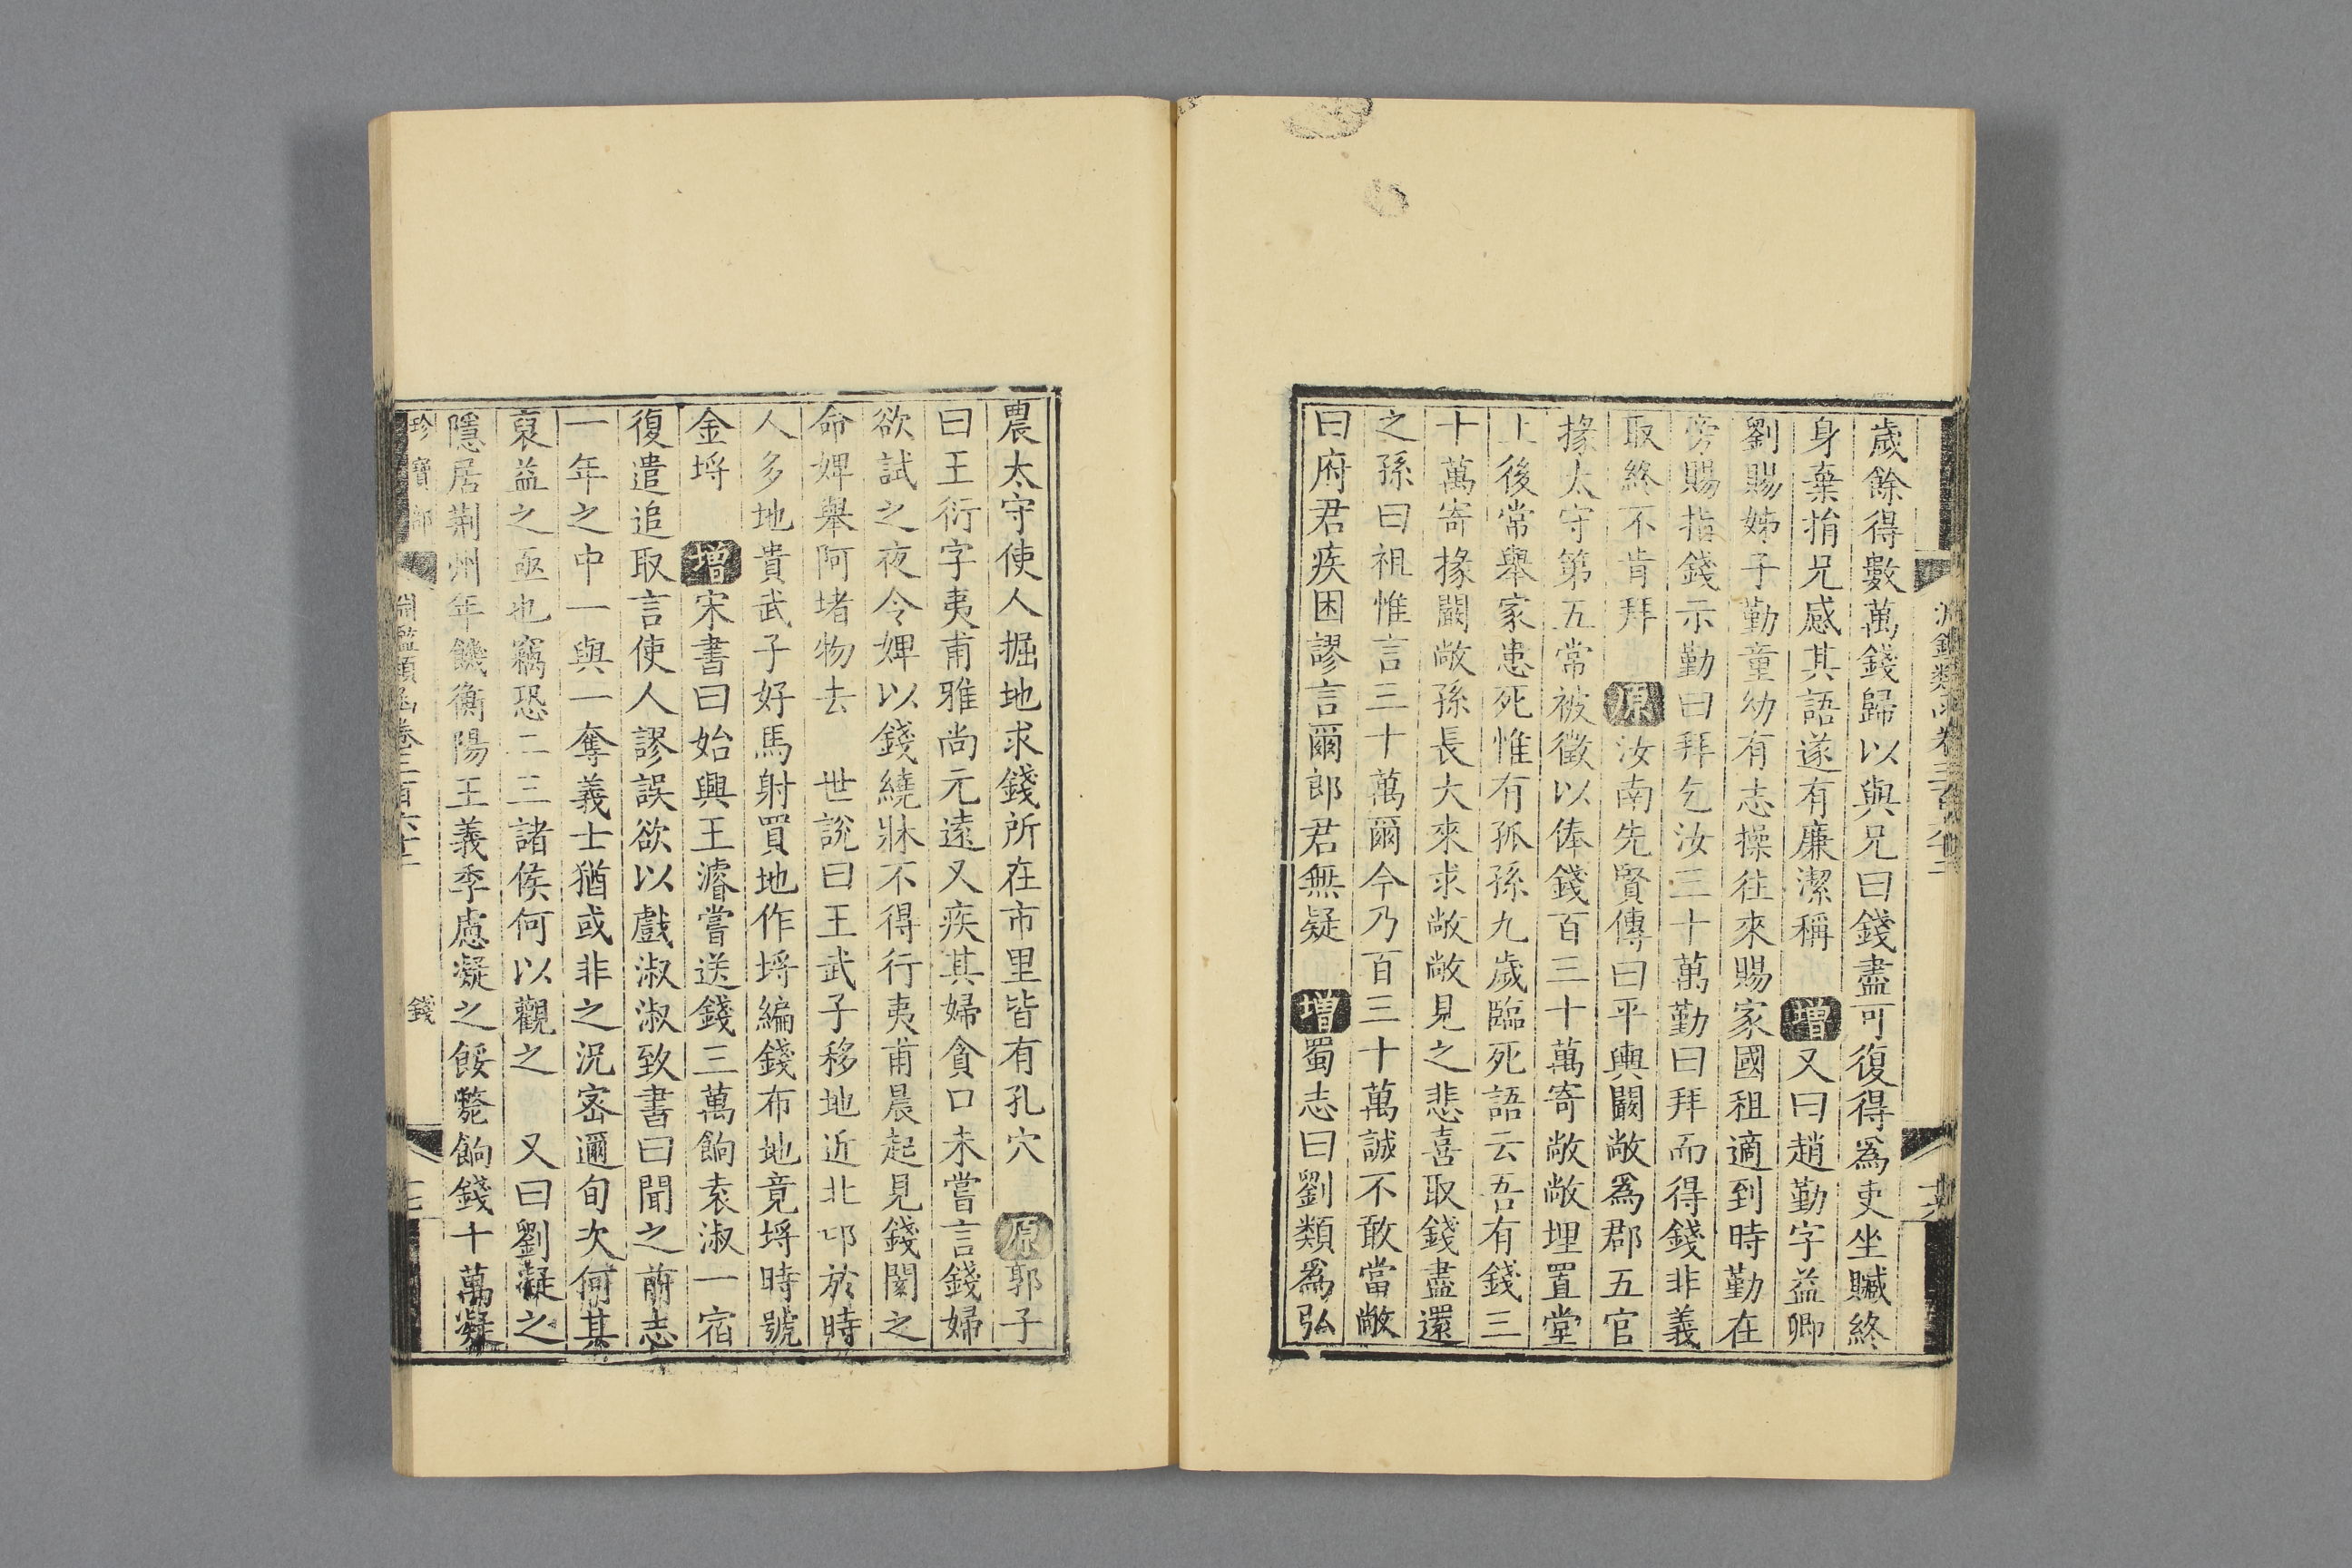 歲餘得數萬錢歸以與兄曰錢盡可復得爲吏坐贓終
身棄捐兄感其語遂有廉潔稱 增又曰趙勤字益卿
劉賜姊子勤童幼有志操徃來賜家國租適到時勤在
旁賜指錢示勤曰拜乞汝三十萬勤曰拜而得錢非義
取終不肯拜 原汝南先賢傳曰平輿闞敞爲郡五官
掾太守第五常被徵以俸錢百三十萬寄敞敞埋置堂
上後常舉家患死惟有孤孫九歲臨死語云吾有錢三
十萬寄掾闞敞孫長大來求敞敞見之悲喜取錢盡還
之孫曰祖惟言三十萬爾今乃百三十萬誠不敢當敞
曰府君疾困謬言爾郎君無疑 增蜀志曰劉類爲弘
農太守使人掘地求錢所在市里皆有孔穴 原郭子
曰王衍字夷甫雅尚元遠又疾其婦貪口未嘗言錢婦
欲試之夜令婢以錢繞牀不得行夷甫晨起見錢閡之
命婢舉阿堵物去 世說曰王武子移地近北邙於時
人多地貴武子好馬射買地作埒編錢布地竟埒時號
金埒 增宋書曰始興王濬嘗送錢三萬餉袁淑一宿
復遣追取言使人謬誤欲以戲淑淑致書曰聞之前志
一年之中一與一奪義士猶或非之況密邇旬次何其
裒益之亟也竊恐二三諸侯何以觀之 又曰劉凝之
隱居荆州年饑衡陽王義季慮凝之餒斃餉錢十萬凝
珍寶部 淵鑑類函卷三百六十二 錢